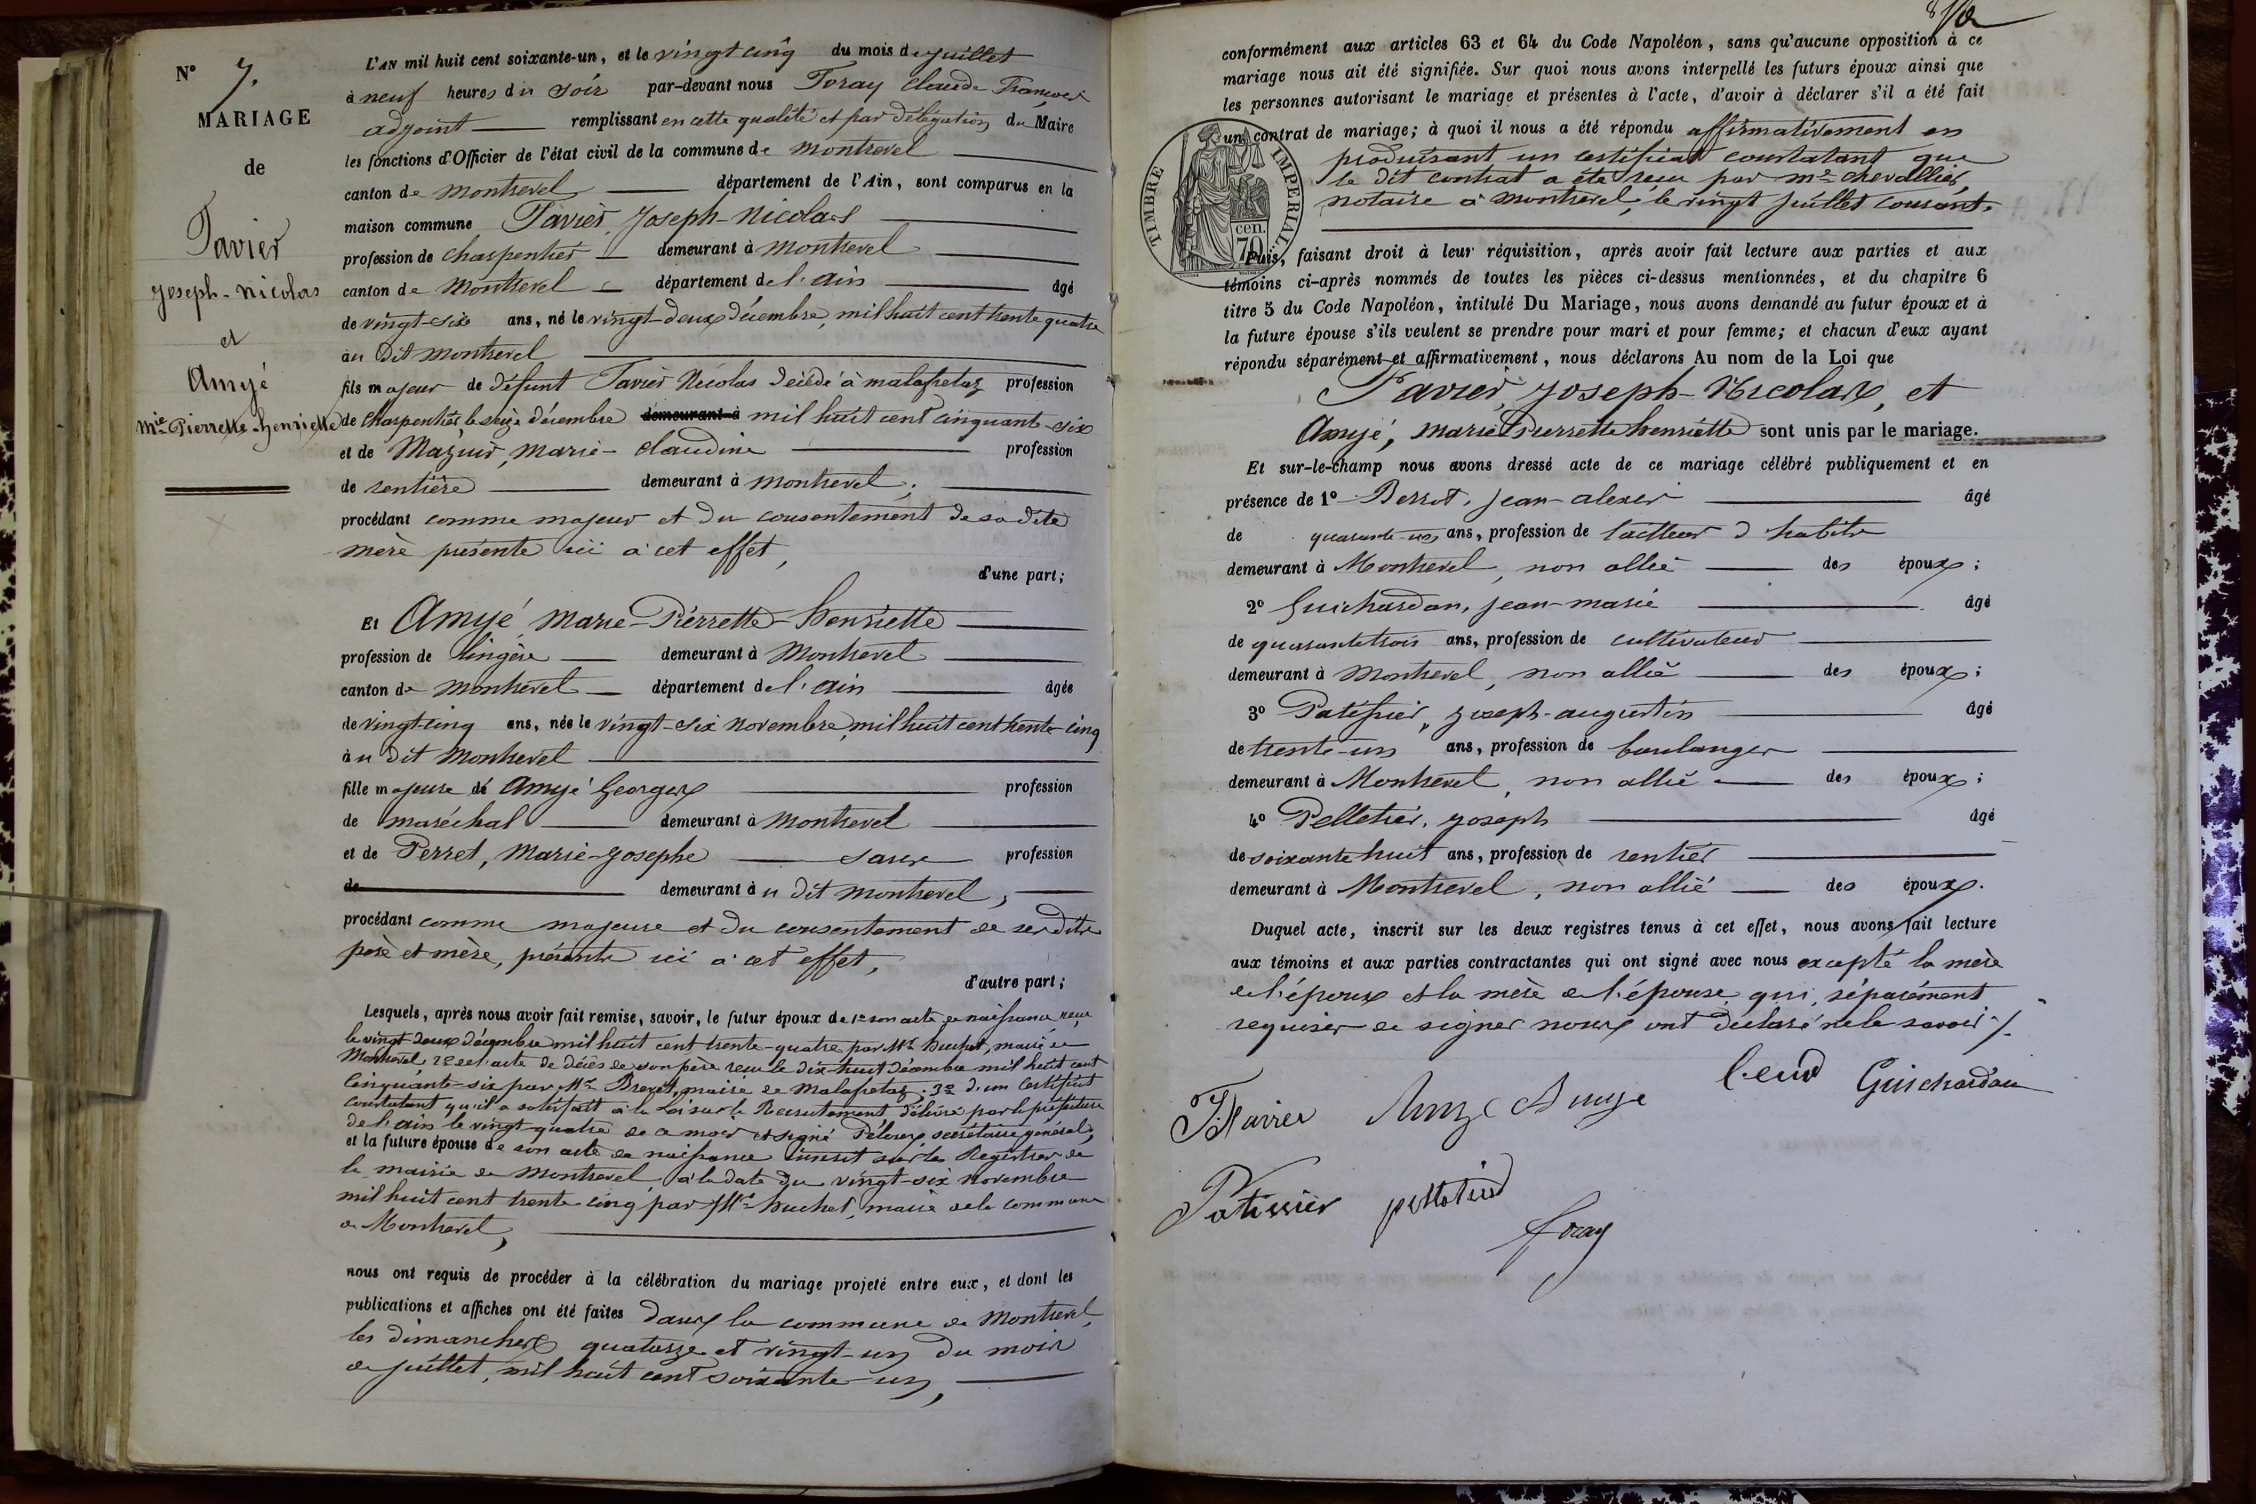 N° 7.
MARIAGE
de
Favier
Joseph-Nicolas
et
Amyé
Mie Pierrette-henriette
L'AN mil huit cent soixante-un, et le vingt cinq du mois de juillet
à neuf heures du soir par-devant nous Foray Claude François
adjoint remplissant en cette qualité et par délégation du Maire
les fonctions d'Officier de l'état civil de la commune de Montrevel
canton de Montrevel département de l'Ain, sont comparus en la
maison commune Favier, Joseph-Nicolas
profession de charpentier demeurant à Montrevel
canton de Montrevel département de l'ain âgé
de vingt-six ans, né le vingt-deux décembre, mil huit cent trente quatre
au dit Montrevel
fils majeur de défunt Favier Nicolas décédé à malafretaz profession
de charpentier le seize décembre demeurant à mil huit cent cinquante-six
et de Mazuir, Marie-Claudine profession
de rentière demeurant à Montrevel,
procédant comme majeur et du consentement de sa dite
mère présente ici à cet effet,
d'une part;
Et Amyé, Marie-Pierrette-henriette
profession de lingère demeurant à Montrevel
canton de Montrevel département de l'ain âgée
de vingt-cinq ans, née le vingt-six novembre, mil huit cent trente-cinq
au dit Montrevel
fille majeure de Amyé Georges profession
de maréchal demeurant à Montrevel
et de Perret, Marie-Josephe sans profession
de demeurant à u dit Montrevel,
procédant comme majeure et du consentement de ses dits
père et mère, présents ici à cet effet,
d'autre part;
Lesquels, après nous avoir fait remise, savoir, le futur époux de 1° son acte de naissance reçu
le vingt deux décembre mil huit cent trente-quatre par Mr huchet, maire de
Montrevel 2° de l'acte de décès de son père reçu le dix-huit décembre mil huit cent
Cinquante-six par Mr Brevet, maire de Malafretaz; 3° d'un certificat
constatant qu'il a satisfait à la Loi sur le Recrutement délivré par la préfecture
de l'ain le vingt-quatre de ce mois et signé secrétaire général,
et la future épouse de son acte de naissance inscrit sur les Registres de
la mairie de Montrevel, à la date du vingt-six novembre
mil huit cent trente cinq par Mr huchet, maire de la commune
de Montrevel,
nous ont requis de procéder à la célébration du mariage projeté entre eux, et dont les
publications et affiches ont été faites dans la commune de Montrevel,
les dimanches quatorze et vingt-un du mois
de juillet, mil huit cent soixante-un,
conformément aux articles 63 et 64 du Code Napoléon, sans qu'aucune opposition à ce
mariage nous ait été signifiée. Sur quoi nous avons interpellé les futurs époux ainsi que
les personnes autorisant le mariage et présentes à l'acte, d'avoir à déclarer s'il a été fait
un contrat de mariage; à quoi il nous a été répondu affirmativement en
produisant un certificat constatant que
le dit contrat a été reçu par Me Chevallier,
notaire à Montrevel, le vingt juillet courant.
TIMBRE IMPERIAL
70 cen.
Puis, faisant droit à leur réquisition, après avoir fait lecture aux parties et aux
témoins ci-après nommés de toutes les pièces ci-dessus mentionnées, et du chapitre 6
titre 5 du Code Napoléon, intitulé Du Mariage, nous avons demandé au futur époux et à
la future épouse s'ils veulent se prendre pour mari et pour femme; et chacun d'eux ayant
répondu séparément et affirmativement, nous déclarons Au nom de la Loi que
Favier, Joseph-Nicolas, et
Amyé, Marie Pierrette henriette sont unis par le mariage.
Et sur-le-champ nous avons dressé acte de ce mariage célébré publiquement et en
présence de 1° Perret, Jean-alexis âgé
de quarante-un ans, profession de tailleur d'habits
demeurant à Montrevel, non allié des époux;
2° Guichardan, Jean-marie âgé
de quarante trois ans, profession de cultivateur
demeurant à Montrevel, non allié des époux;
3° Patissier, Joseph-augustin âgé
de trente-un ans, profession de boulanger
demeurant à Montrevel, non allié des époux;
4° Pelletier, Joseph âgé
de soixante huit ans, profession de rentier
demeurant à Montrevel, non allié des époux.
Duquel acte, inscrit sur les deux registres tenus à cet effet, nous avons fait lecture
aux témoins et aux parties contractantes qui ont signé avec nous excepté la mère
de l'époux et la mère de l'épouse qui, séparément
requises de signer nous ont déclaré ne le savoir
Favier Amyé Amyé Guichardan
Patissier pelletier
foray